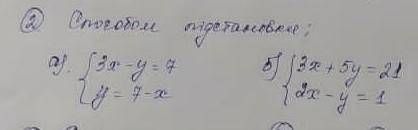 ② Способом підстановки;
а). { 3x - y = 7 б) { 3x + 5y = 21
y = 7 - x 2x - y = 1